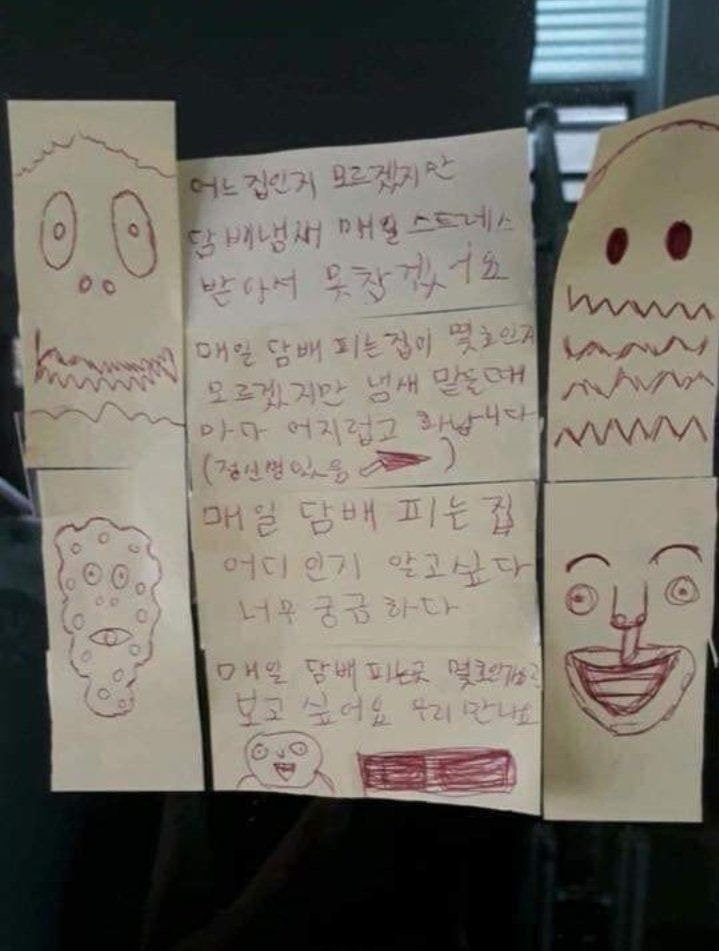 어느집인지 모르겠지만
담배냄새 매일 스트레스
받아서 못참겠어요
매일 담배 피는집이 몇호인지
모르겠지만 냄새 맡을때
마다 어지럽고 화납니다
(정신병있음)
매일 담배 피는 집
어디인지 알고싶다
너무 궁금하다
매일 담배피는곳
보고싶어요 우리만나요